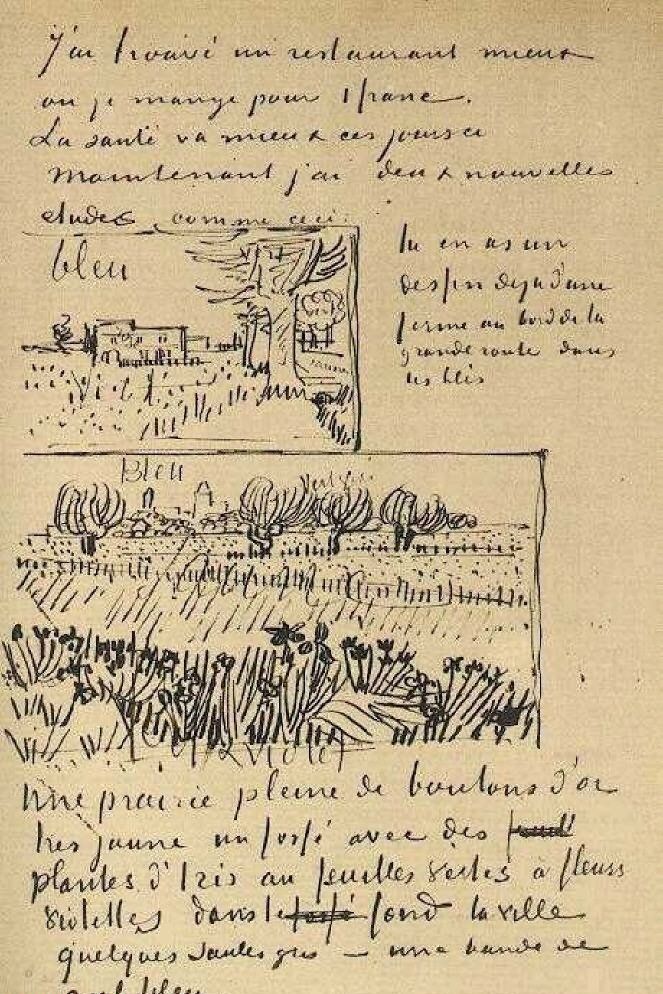 J'ai trouvé un restaurant mieux
ou je mange pour 1 franc.
La santé va mieux ces jours ci
Maintenant j'ai deux nouvelles
etudes comme ceci:
bleu
vert
jaune
tu en as un
dessin deja d'une
ferme au bord de la
grande route dans
les blés
Bleu
vert gris
violet
Une prairie pleine de boutons d'or
tres jaune un fossé avec des
plantes d'Iris au feuilles vertes à fleurs
violettes dans le fossé fond la ville
quelques saules gris – une bande de
ciel bleu